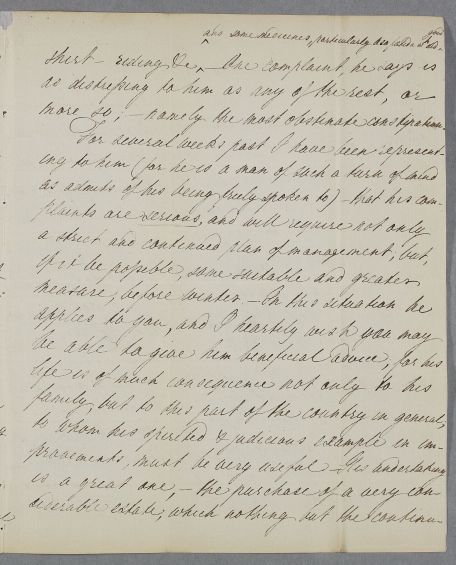 also some medicines, particularly good
shirt - riding &c, - One complaint, he says is
as distressing to him as any of the rest, or
more so, - namely the most obstinate constipation.
For several weeks past I have been represent-
ing to him (for he is a man of such a turn of mind
as admits of his being truly spoken to) - that his com-
plaints are serious, and will require not only
a strict and continued plan of management, but,
if it be possible, some suitable and greater
measure, before winter. - In this situation he
applies to you, and I heartily wish you may
be able to give him beneficial advice, for his
life is of much consequence not only to his
family, but to this part of the country in general,
to whom his spirited & judicious example in im-
provements, must be very useful - His undertaking
is a great one, - the purchase of a very con-
siderable estate, which nothing but the continu-